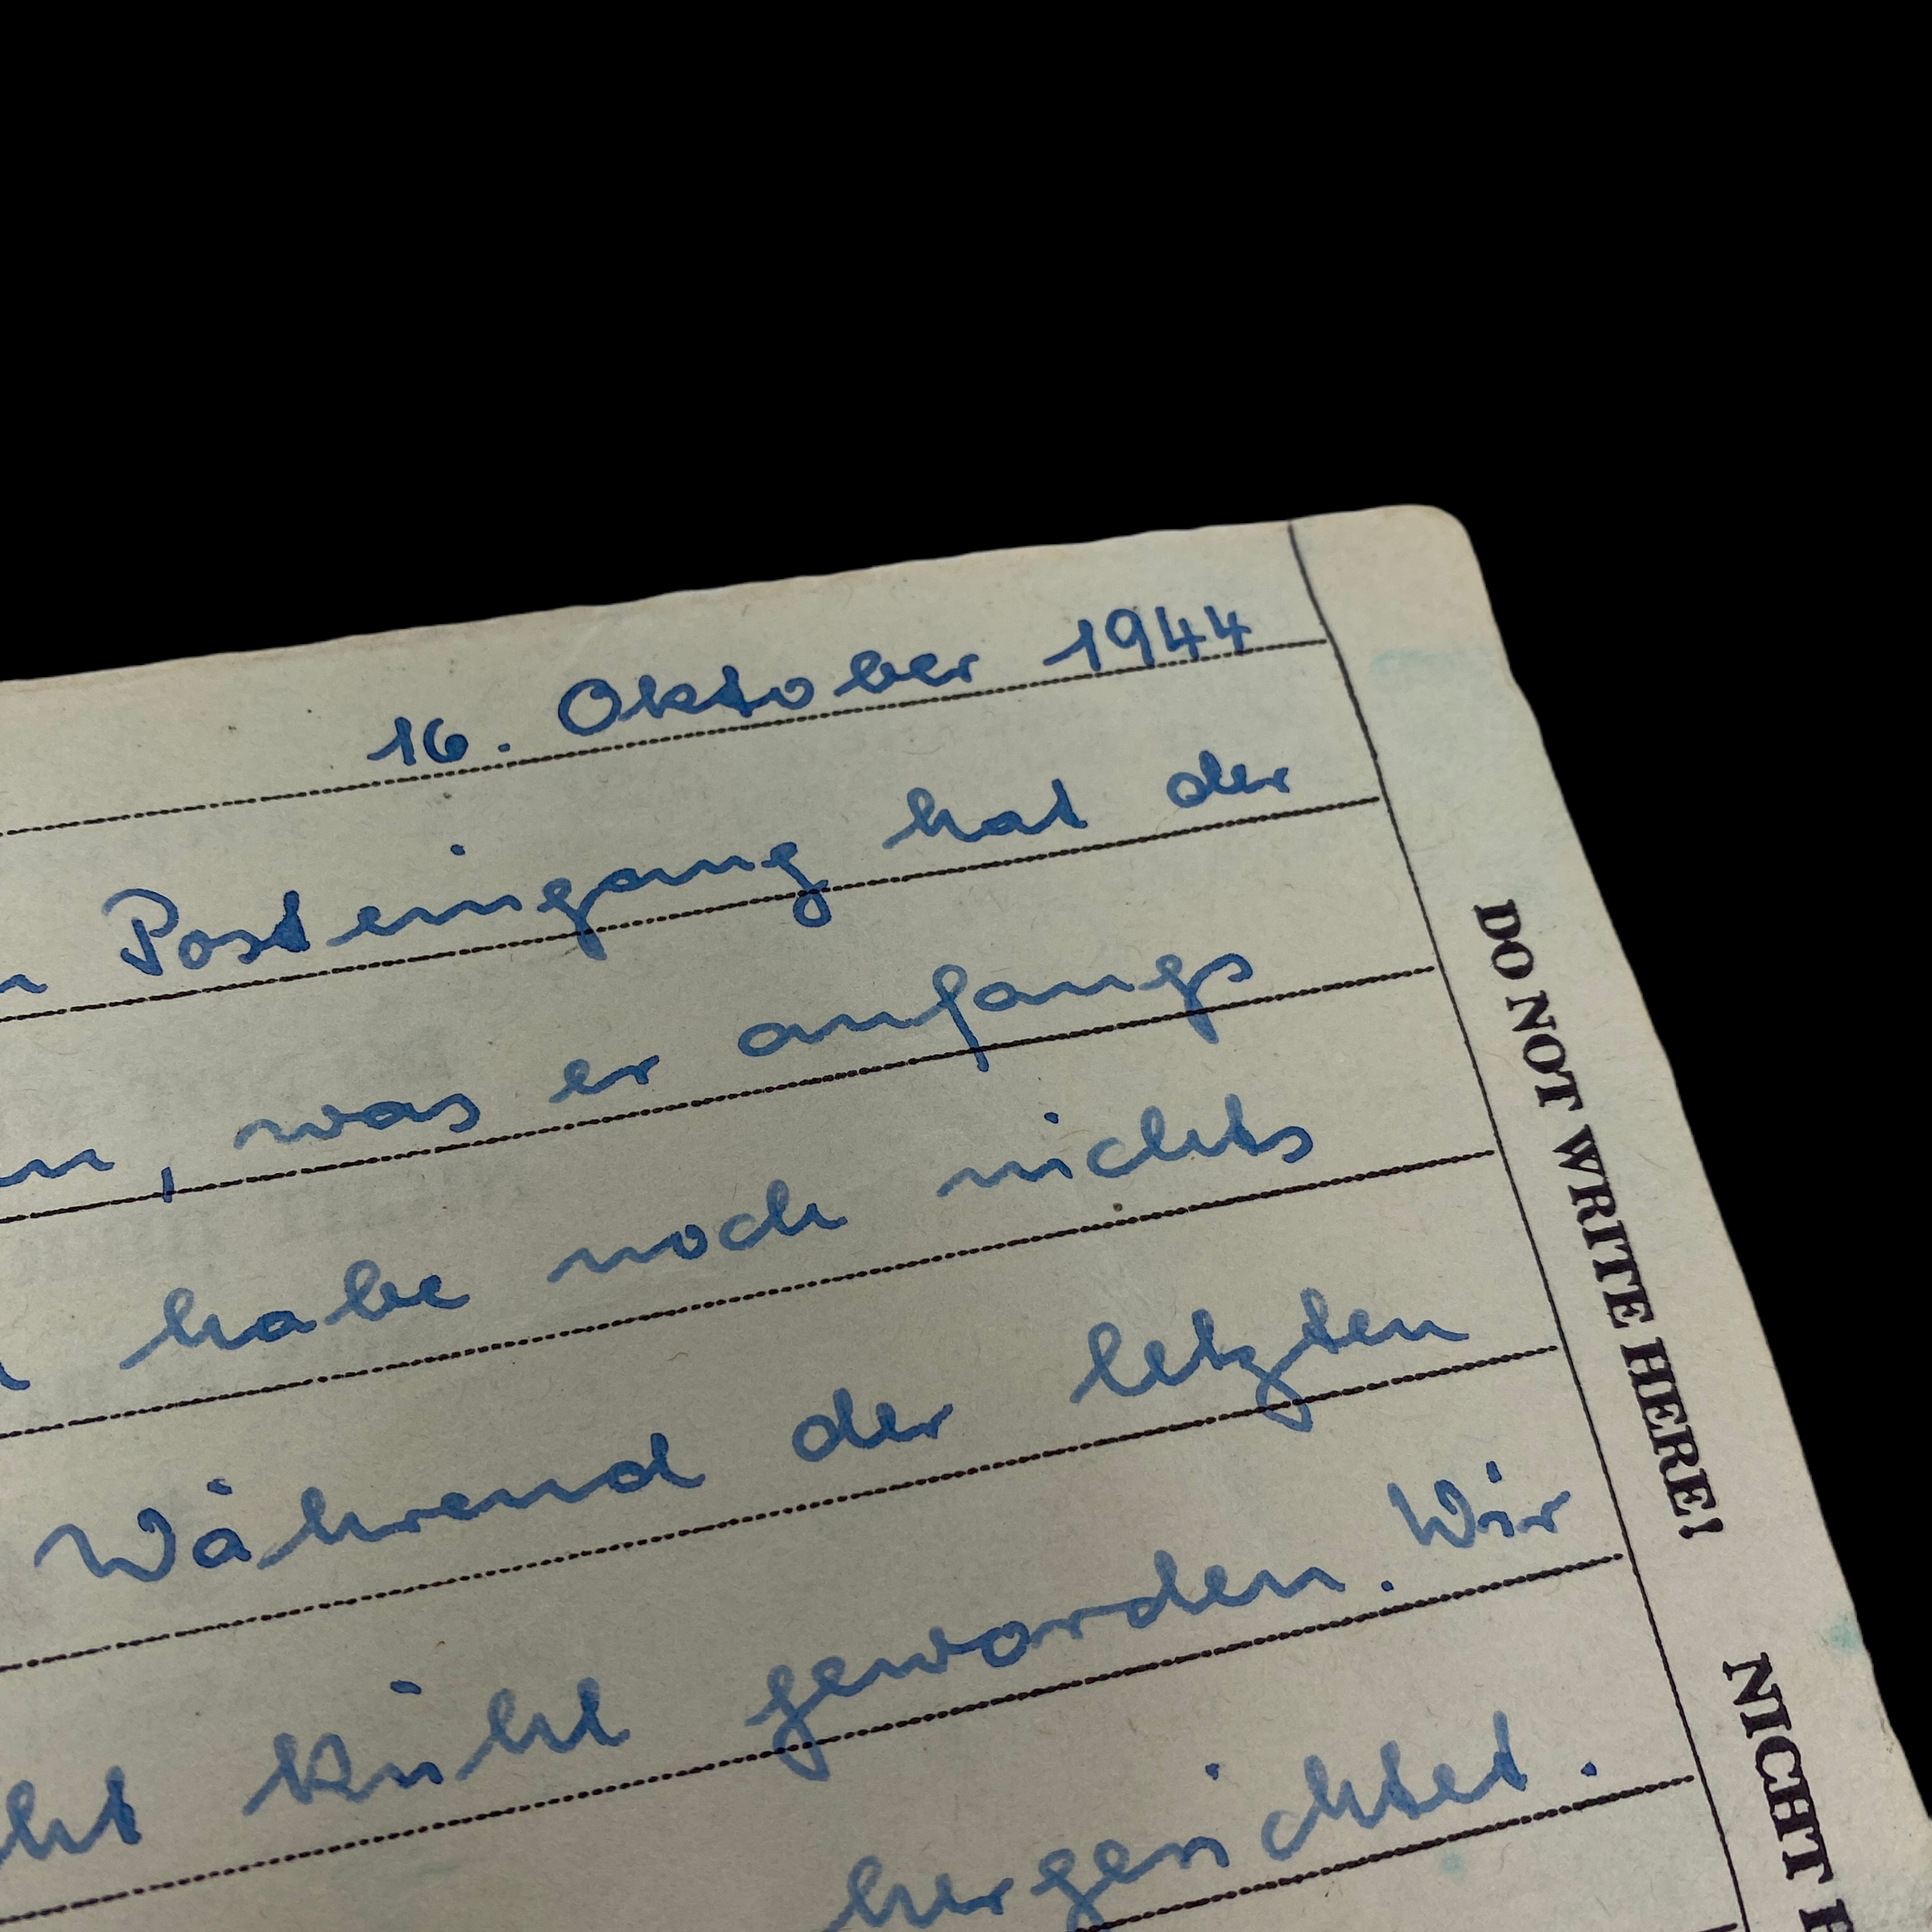 16. Oktober 1944
Posteingang hat der
, was er anfangs
habe noch nichts
Während der letzten
kühl geworden. Wir
hergerichtet.
DO NOT WRITE HERE!
NICHT